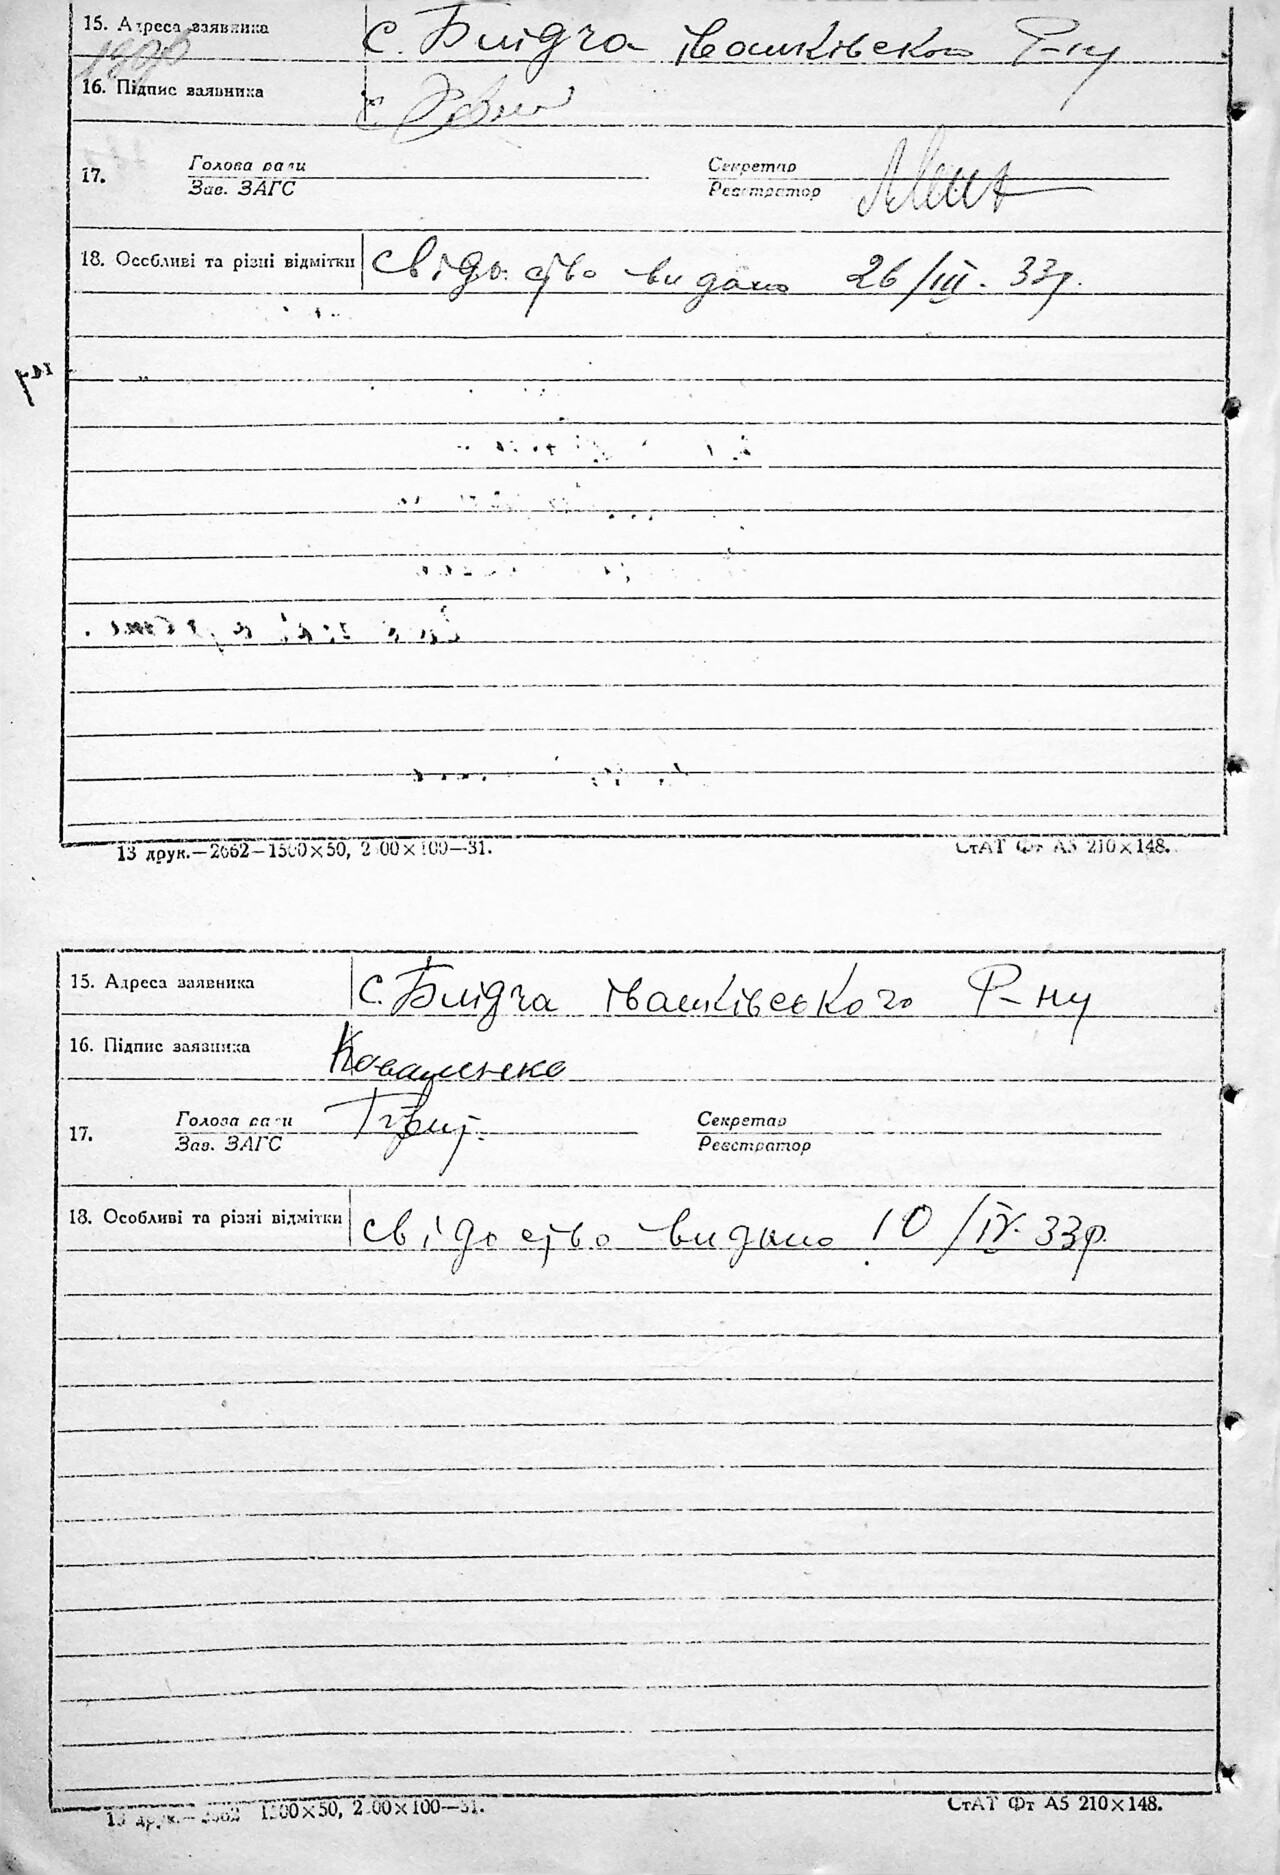 15. Адреса заявника с. Блідча Івашківського Р-ну
16. Підпис заявника
17. Голова ради Секретар
Зав. ЗАГС Реєстратор
18. Особливі та різні відмітки свідоство видано 26/III. 33р.
13 друк.—2662—1500×50, 2 00×100—31. СтАТ Фт А5 210×148.
15. Адреса заявника с. Блідча Івашківського Р-ну
16. Підпис заявника Коваленко
17. Голова ради Секретар
Зав. ЗАГС Реєстратор
18. Особливі та різні відмітки свідоство видано 10/IV. 33р.
13 друк.—2662 1500×50, 2 00×100—31. СтАТ Фт А5 210×148.